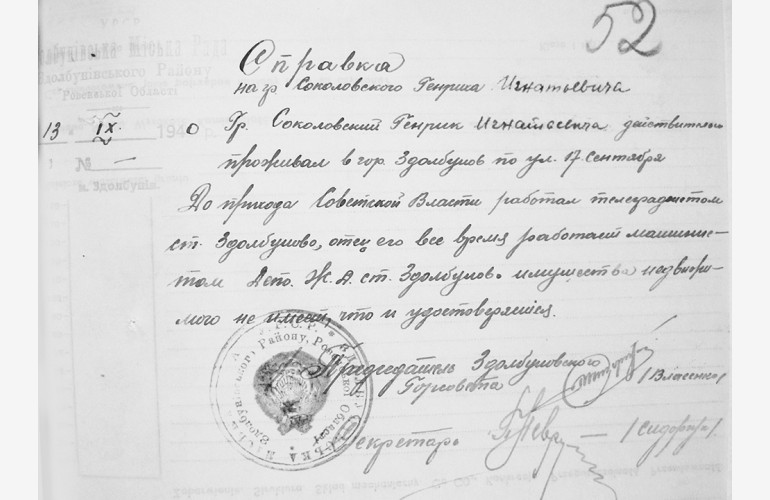 52
Здолбунівська Міська Рада
Здолбунівського Району
Ровенської Області
13 IX. 1940 р.
№ —
м. Здолбунів
Справка
на гр. Соколовского Генрика Игнатьевича
Гр. Соколовский Генрик Игнатьевича действительно
проживал в гор. Здолбунов по ул. 17 Сентября
До прихода Советской Власти работал телеграфистом
ст. Здолбуново, отец его все время работает машинис-
том Депо. Ж.Д. ст. Здолбуново имущества недвижи-
мого не имеет, что и удостоверяется.
Председатель Здолбуновского
Горсовета /Власенко/
Секретарь — /Сидорук/